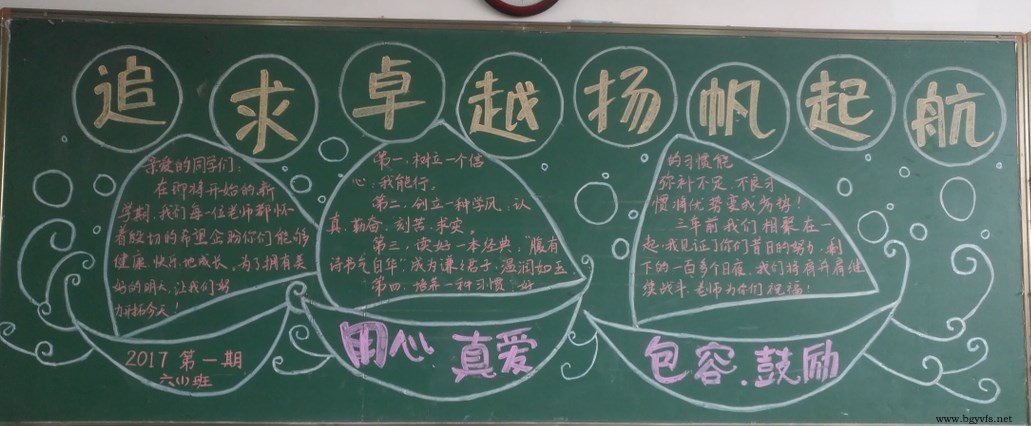 追求卓越扬帆起航
亲爱的同学们:
在即将开始的新
学期,我们每一位老师都怀
着殷切的希望企盼你们能够
健康、快乐地成长。为了拥有美
好的明天,让我们努
力开拓今天!
2017 第一期
六(1)班
第一,树立一个信
心:我能行。
第二,创立一种学风,认
真、勤奋、刻苦、求实。
第三,读好一本经典,“腹有
诗书气自华”,成为谦谦君子,温润如玉
第四,培养一种习惯,好
用心、真爱
的习惯能
弥补不足,不良习
惯将优势变成劣势!
三年前我们相聚在一
起,我见证了你们昔日的努力,剩
下的一百多个日夜,我们将肩并肩继
续战斗,老师为你们祝福!
包容、鼓励
www.bgyvfs.net